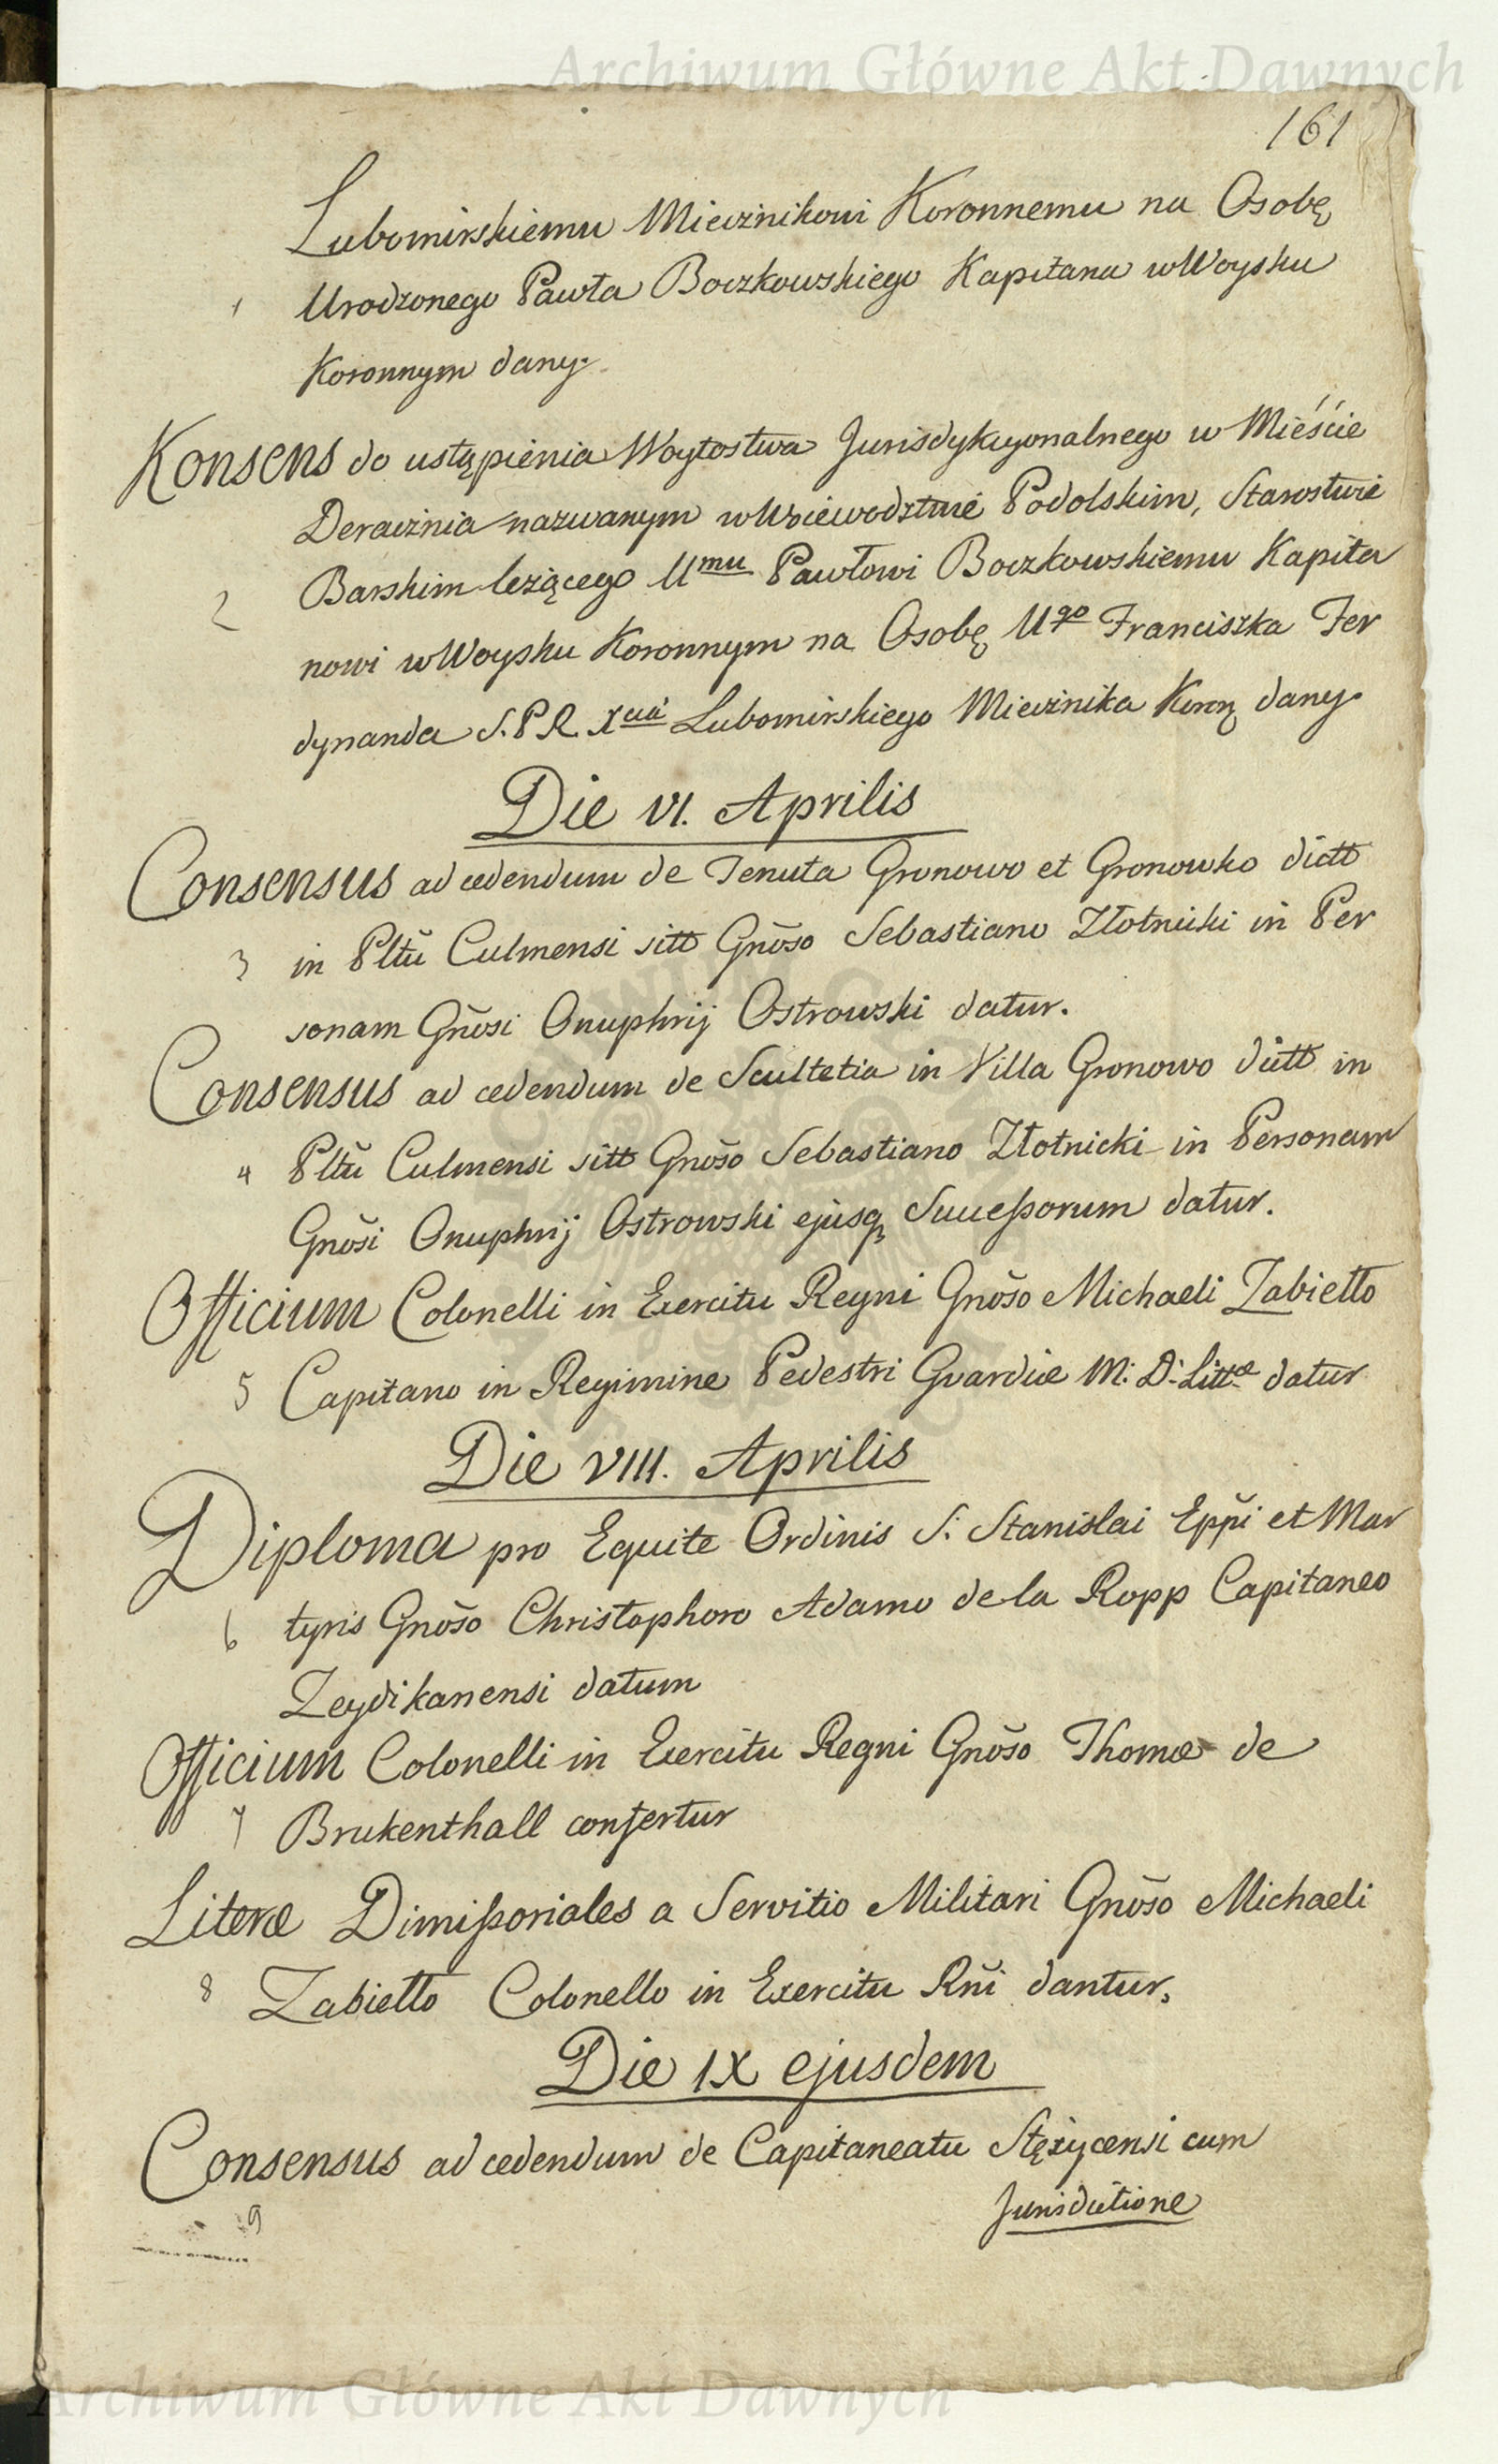 Archiwum Główne Akt Dawnych
161
Lubomirskiemu Miecznikowi Koronnemu na Osobę
1 Urodzonego Pawła Boczkowskiego Kapitana w Woysku
Koronnym dany.
Konsens do ustąpienia Woytostwa Jurisdykcyonalnego w Mieście
Deraźnia nazwanym w Woiewodztwie Podolskim, Starostwie
2 Barskim leżącego U<sup>mu</sup> Pawłowi Boczkowskiemu Kapita
nowi w Woysku Koronnym na Osobę U<sup>go</sup> Franciszka Fer
dynanda S. P. R. X<sup>cia</sup> Lubomirskiego Miecznika Koron̨ dany.
Die VI. Aprilis
Consensus ad cedendum de Tenuta Gronowo et Gronowko dictt
3 in Pltũ Culmensi sitt Gnõso Sebastiano Złotnicki in Per
sonam Gnõsi Onuphrij Ostrowski datur.
Consensus ad cedendum de Scultetia in Villa Gronowo dictt in
4 Pltũ Culmensi sitt Gnõso Sebastiano Złotnicki in Personam
Gnõsi Onuphrij Ostrowski ejusq̨ Succeßorum datur.
Officium Colonelli in Exercitu Regni Gnõso Michaeli Zabiełło
5 Capitano in Regimine Pedestri Gvardiæ M: D: Litt<sup>æ</sup> datur
Die VIII. Aprilis
Diploma pro Equite Ordinis S: Stanislai Eppĩ et Mar
6 tyris Gnõso Christophoro Adamo de la Ropp Capitaneo
Zeydikanensi datum
Officium Colonelli in Exercitu Regni Gnõso Thomæ de
7 Brukenthall confertur
Literæ Dimißoriales a Servitio Militari Gnõso Michaeli
8 Zabiełło Colonello in Exercitu Rñi dantur.
Die IX ejusdem
Consensus ad cedendum de Capitaneatu Stężycensi cum
9
Jurisdictione
Archiwum Główne Akt Dawnych